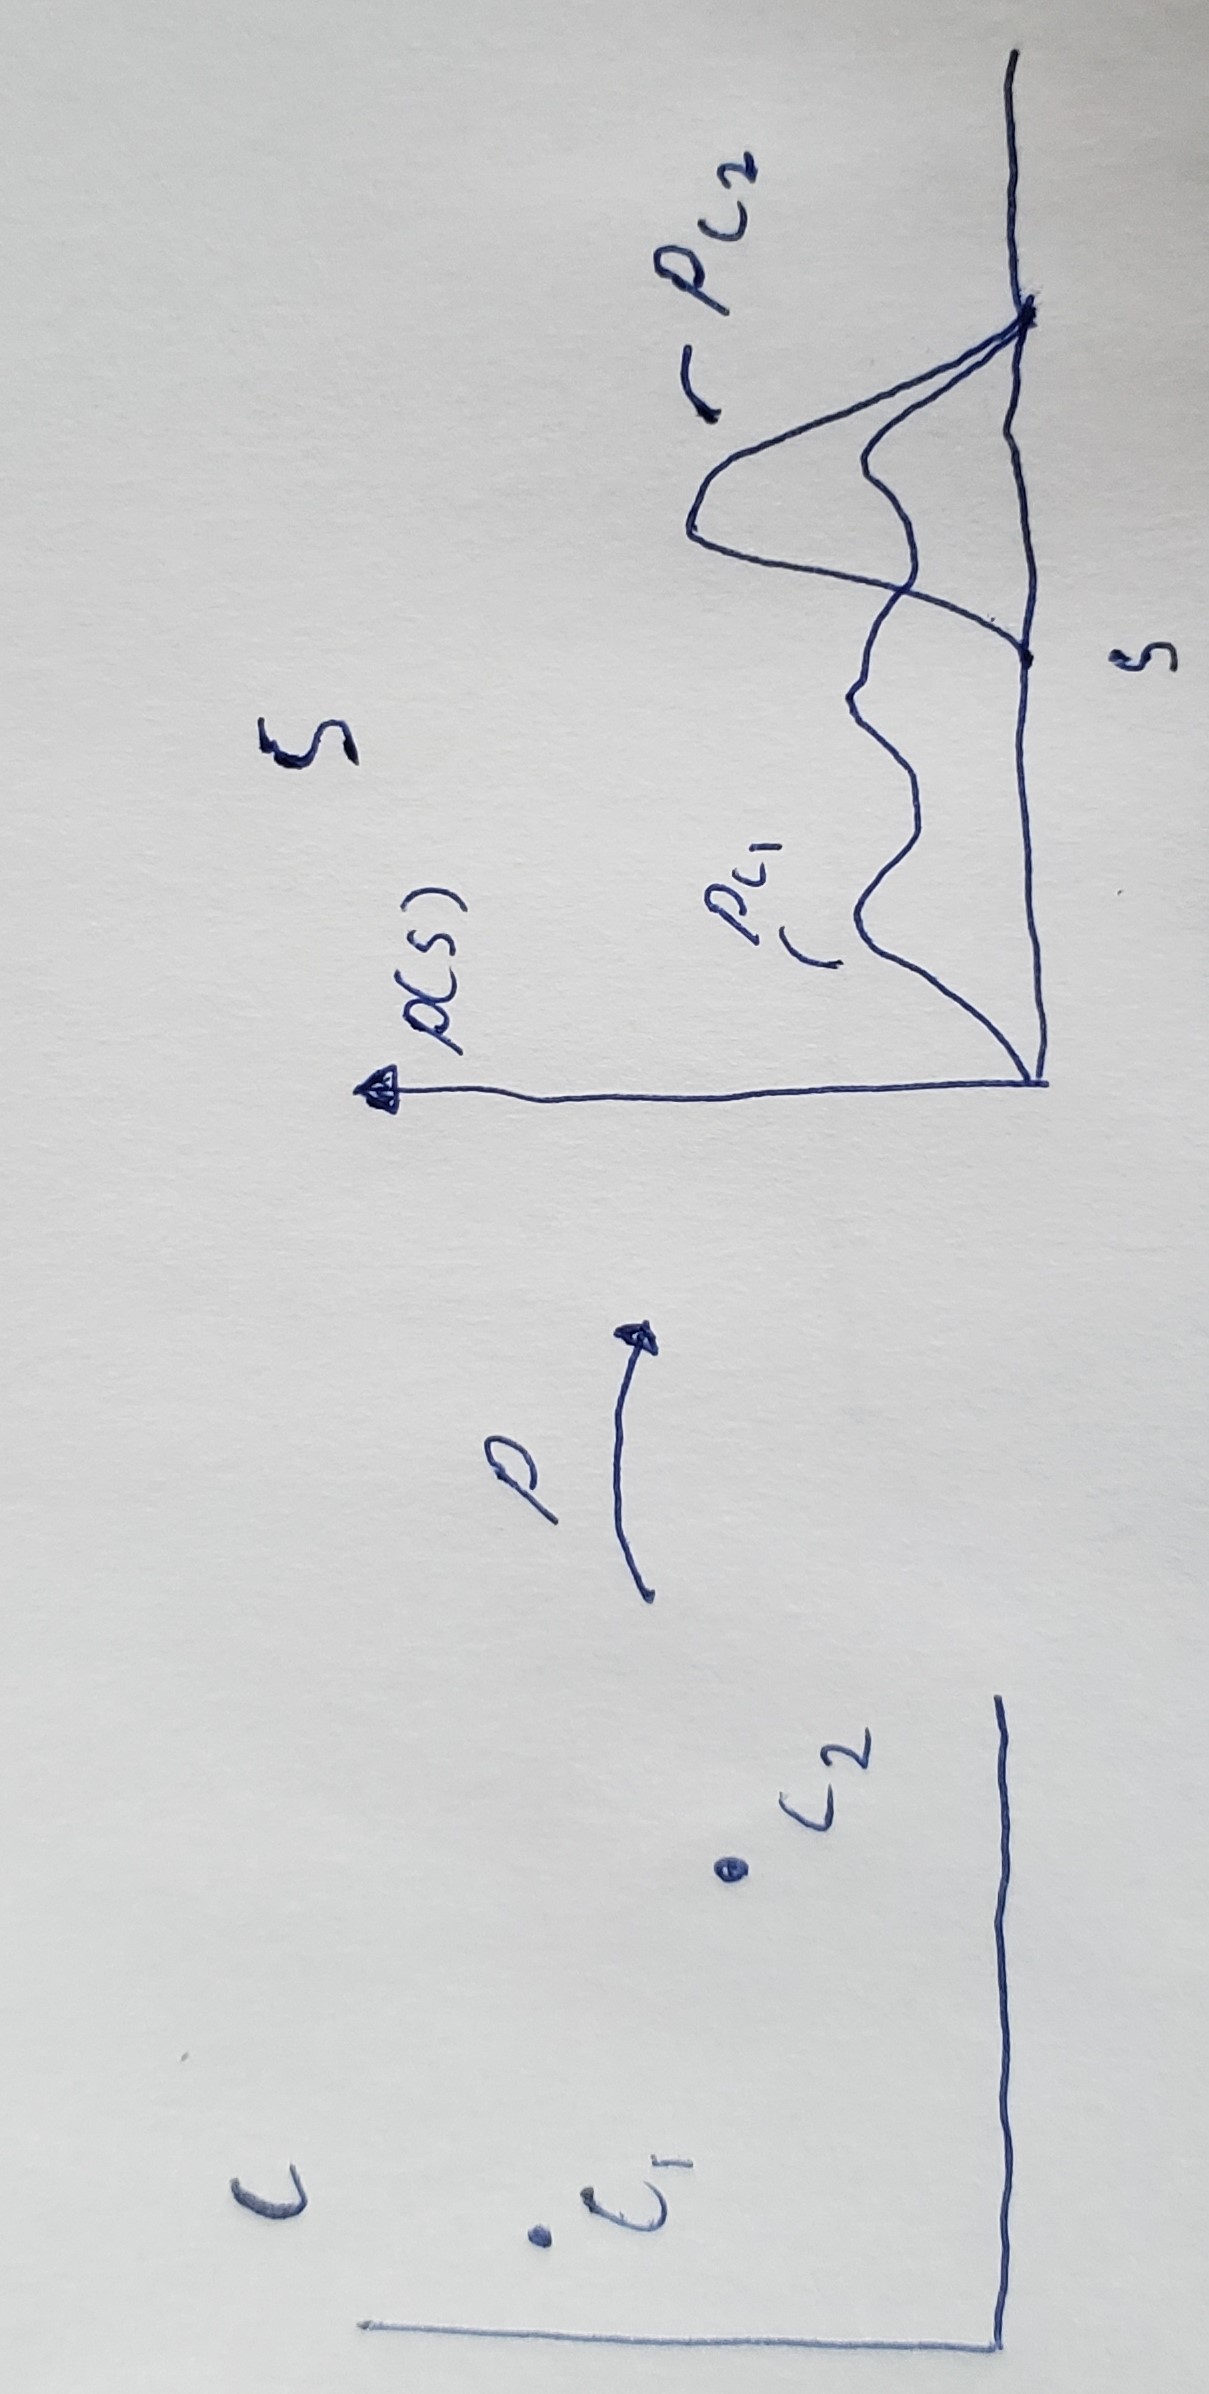 C
S
C₁
C₂
P
p(s)
P_C₁
P_C₂
s